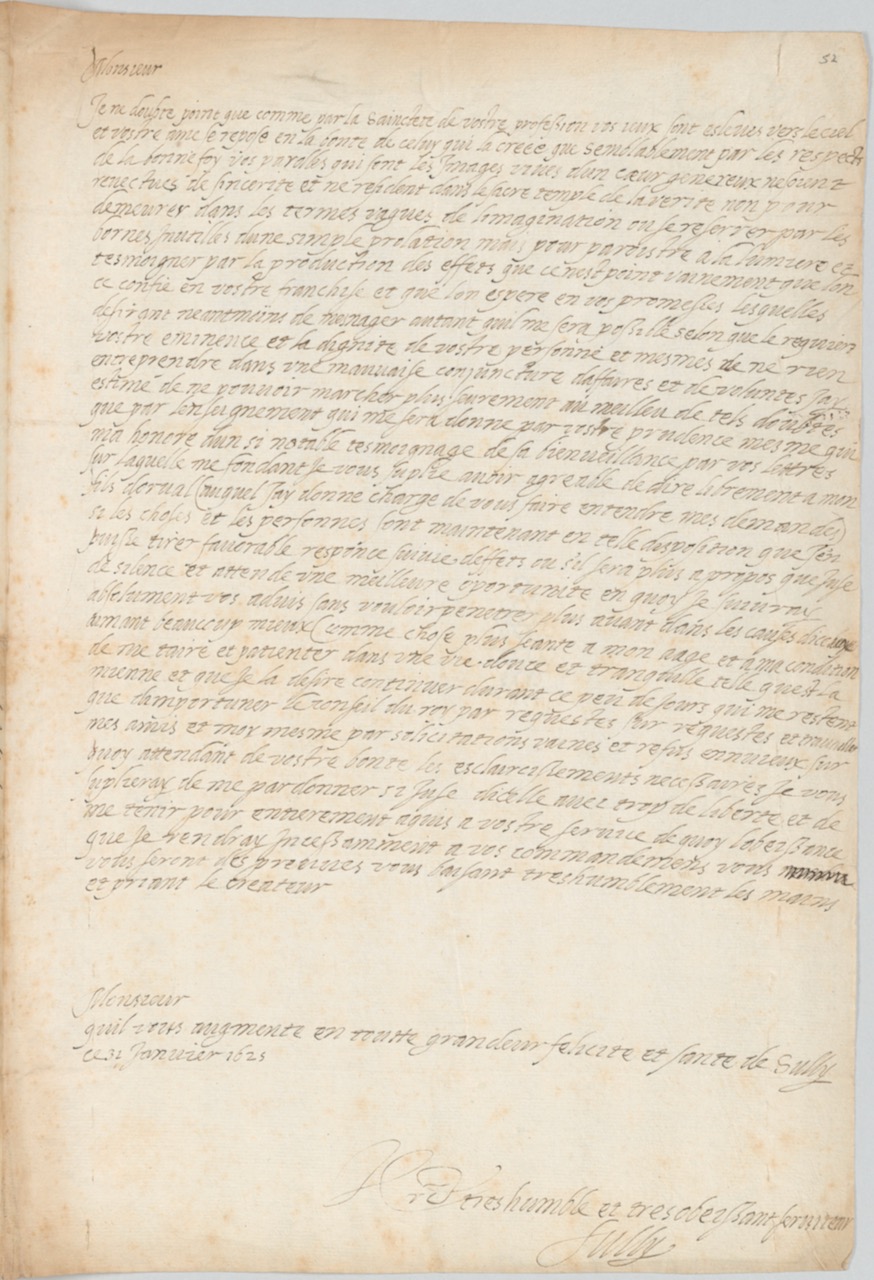 52
Monsieur
Je ne doubte point que comme par la Saincteté de vostre profession vos ieux sont eslevés vers le ciel
et vostre ame se repose en la bonté de celuy qui la creée que semblablement par les respects
de la bonne foy vos parolles qui sont les Images vives dun cœur genereux ne soient
revectues de sincerité et ne resident dans le sacré temple de la verité non pour
demeurer dans les termes vagues de limagination ou se reserrer par les
bornes Inutilles dune simple prolation mais pour paroistre a la lumiere et
tesmoigner par la production des effets que ce nest point vainement que lon
ce confie en vostre franchise et que lon espere en vos promesses lesquelles
desirant neantmoins de mesnager autant quil me sera possible selon que le requiert
vostre eminence et la dignité de vostre personne et mesmes de ne rien
entreprendre dans une mauvaise conjuncture daffaires et de volontés Jay
estimé de ne pouvoir marcher plus seurement au milleu de tels doubtes
que par lenseignement qui me sera donné par vostre prudence mesme qui
ma honoré dun si notable tesmoignage de sa bienveillance par vos lettres
sur laquelle me fondant Je vous suplie avoir aggreable de dire librement a mon
fils dorval (auquel Jay donné charge de vous faire entendre mes demandes)
si les choses et les personnes sont maintenant en telle disposition que Jen
puisse tirer favorable responce suivie deffets ou sil sera plus a propos que Juse
de silence et attende une meilleure oportunité en quoy Je suivray
absolument vos advis sans vouloir penetrer plus avant dans les causes diceluy
aimant beaucoup mieux (comme chose plus seante a mon aage et a ma condition
de me taire et patienter dans une vie douce et tranquille telle quest la
mienne et que Je la desire continuer durant ce peu de Jours qui me restent
que dimportuner le conseil du roy par requestes sur requestes et travailler
mes amis et moy mesme par solicitations vaines et refus ennuieux sur
quoy attendant de vostre bonté les esclaircissements necessaires Je vous
suplieray de me pardonner si Juse dicelle avec trop de liberté et de
me tenir pour entierement aquis a vostre service de quoy lobeissance
que Je rendray Incessamment a vos commandemens vous
vous seront des preuves vous baisant treshumblement les mains
et priant le createur
Monsieur
quil vous augmente en toutte grandeur felicité et santé de Sully
ce 31 Janvier 1625
treshumble et tresobeissant serviteur
Sully